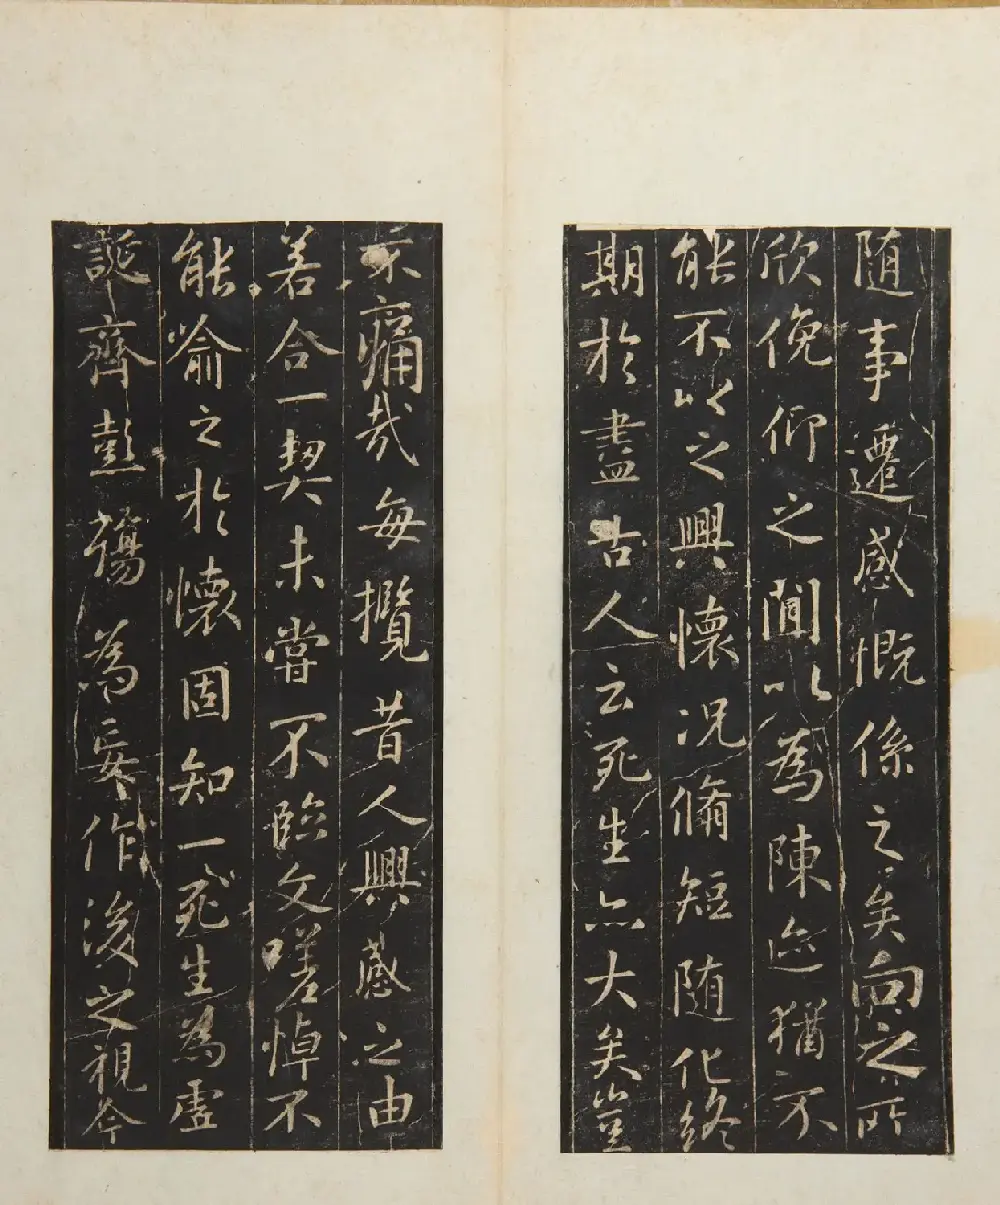 随事遷感慨係之矣向之所
欣俛仰之閒以為陳迹猶不
能不以之興懷况脩短随化終
期於盡古人云死生亦大矣豈
不痛哉每攬昔人興感之由
若合一契未嘗不臨文嗟悼不
能喻之於懷固知一死生為虛
誕齊彭殤為妄作後之視今